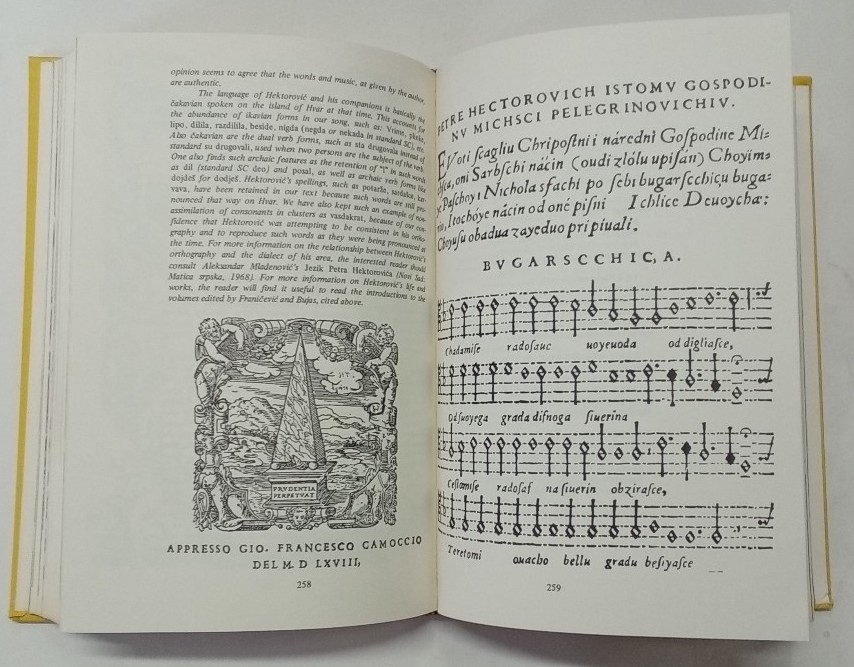 opinion seems to agree that the words and music, as given by the author,
are authentic.
The language of Hektorović and his companions is basically the
čakavian spoken on the island of Hvar at that time. This accounts for
the abundance of ikavian forms in our song, such as: Vrime, ykske,
lipo, dilila, razdilila, beside, nigda (negda or nekada in standard SC), etc.
Also čakavian are the dual verb forms, such as sta drugovala instead of
standard su drugovali, used when two persons are the subject of the verb.
One also finds such archaic features as the retention of "l" in such words
as dil (standard SC deo) and posal, as well as archaic verb forms like
dojdeš for dodješ. Hektorović's spellings, such as potarše, sardašce, kar-
vava, have been retained in our text because such words are still pro-
nounced that way on Hvar. We have also kept such an example of non-
assimilation of consonants in clusters as vazdakrat, because of our con-
fidence that Hektorović was attempting to be consistent in his ortho-
graphy and to reproduce such words as they were being pronounced at
the time. For more information on the relationship between Hektorović's
orthography and the dialect of his area, the interested reader should
consult Aleksandar Mladenović's Jezik Petra Hektorovića (Novi Sad:
Matica srpska, 1968). For more information on Hektorović's life and
works, the reader will find it useful to read the introductions to the
volumes edited by Franičević and Bujas, cited above.
PRVDENTIA
PERPETVAT
APPRESSO GIO. FRANCESCO CAMOCCIO
DEL M D LXVIII,
258
PETRE HECTOROVICH ISTOMV GOSPODI-
NV MICHSCI PELEGRINOVICHIV.
EVoti ſcagliu Chripoſtni i náredni Goſpodine Mi-
oni Sarbſchi náčin (oudi zlólu upiſán) Choyim₂
Paſchoy i Nichola sfachi po ſebi bugarſcchiçu buga₌
i tochóye náčin od oné piſni I chlice Deuoycha:
Choyuſu obadua zayeduo pri piuali.
BVGARSCCHIC, A.
Chadamiſe radoſauc uoyeuoda od digliaſce,
Od ſuoyega grada diſnoga ſiuerina
Ceſtomiſe radoſaf na ſiuerin obziraſce,
Teretomi ouacho bellu gradu beſiyaſce
259